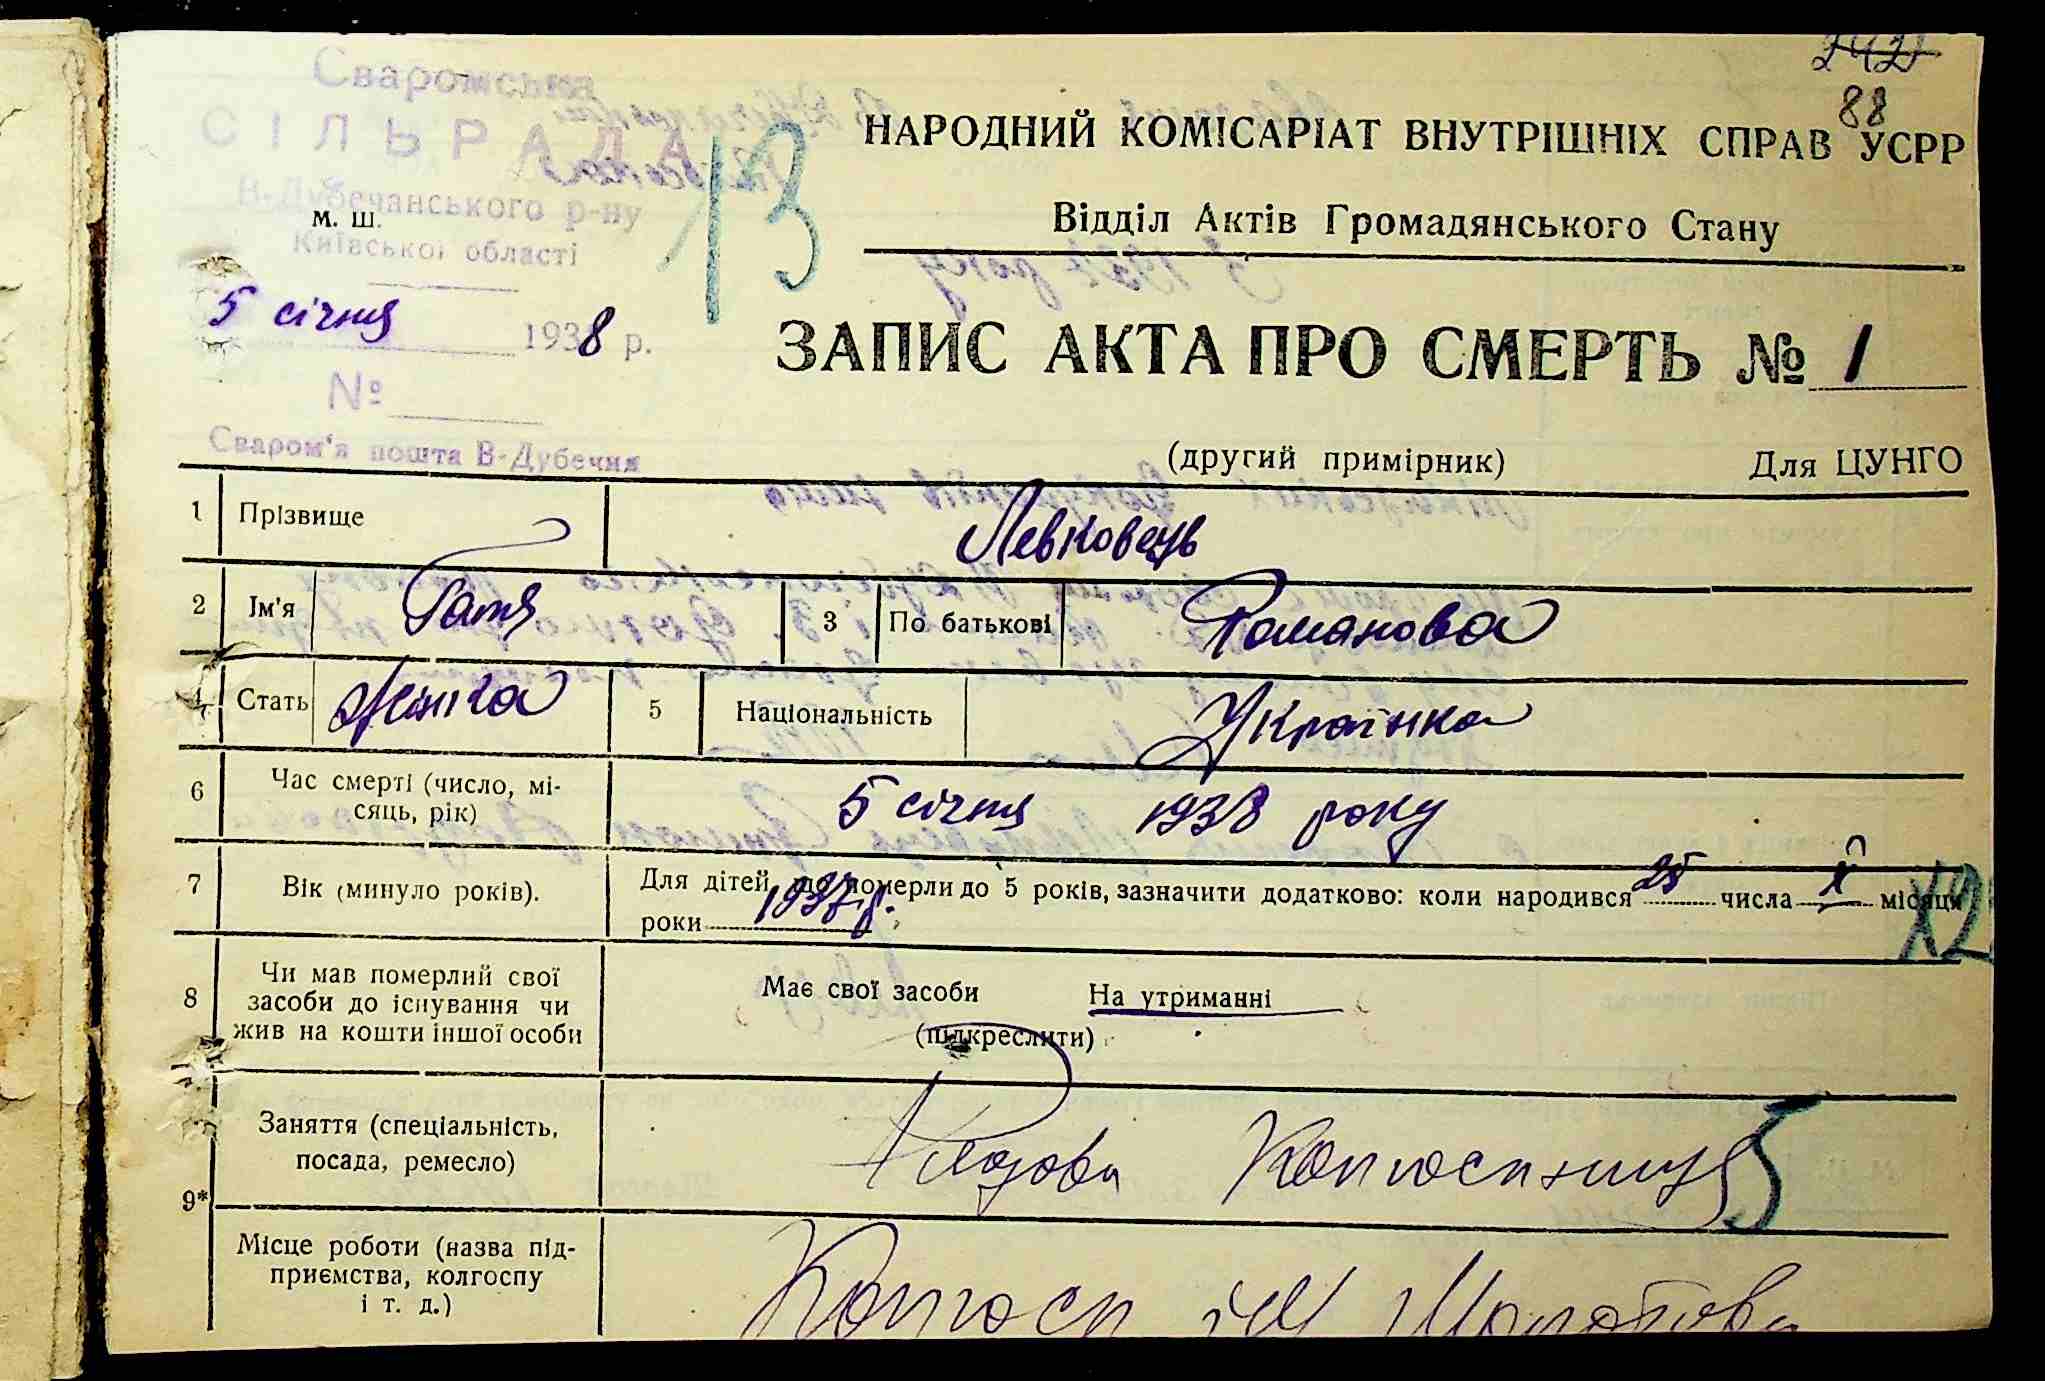 242
88
Сваромська
СІЛЬРАДА
В-Дубечанського р-ну
м. ш.
Київської області
13
5 січня 1938 р.
№
Сваром'я пошта В-Дубечня
НАРОДНИЙ КОМІСАРІАТ ВНУТРІШНІХ СПРАВ УСРР
Відділ Актів Громадянського Стану
ЗАПИС АКТА ПРО СМЕРТЬ № 1
(другий примірник) Для ЦУНГО
1 Прізвище Левковець
2 Ім'я Гатя 3 По батькові Романова
4 Стать Жінка 5 Національність Українка
6 Час смерті (число, мі-
сяць, рік) 5 січня 1938 року
7 Вік (минуло років). Для дітей, що померли до 5 років, зазначити додатково: коли народився 25 числа X місяця
роки 1937 р.
8 Чи мав померлий свої
засоби до існування чи
жив на кошти іншої особи
Має свої засоби На утриманні
(підкреслити)
9* Заняття (спеціальність,
посада, ремесло) Рядова Колгоспниця
5
Місце роботи (назва під-
приємства, колгоспу
і т. д.) Колгосп ім Молотова